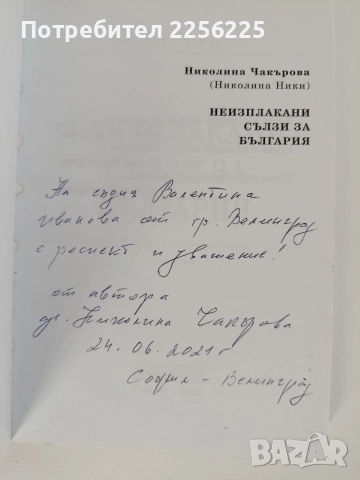 Николина Чакърова
(Николина Ники)
НЕИЗПЛАКАНИ
СЪЛЗИ ЗА
БЪЛГАРИЯ
На съдия Валентина
Иванова от гр. Велинград
с респект и уважение!
от автора
Николина Чакърова
24.06.2021 г
София - Велинград
BAZAR